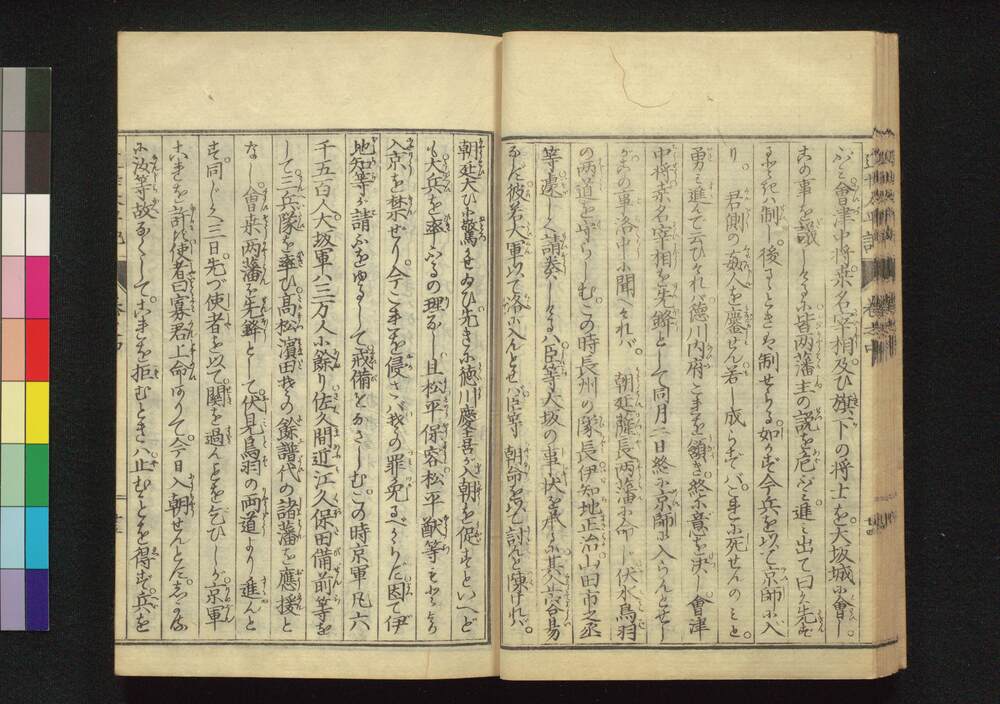 ぶ會津中将桒名宰相及ひ旗下の将士を大坂城に會し
この事を議しけるに皆両藩主の説を危ぶミ進ミ出て曰く先ず
るときハ制し後るゝときハ制せらる如かず今兵を以て京師に入
り。君側の奸人を鏖せんに若し成らずバこまに死せんのミと。
勇ミ進んで云ひけれバ徳川内府こまを頷き終に意を决し。會津
中将桒名宰相を先鋒として同月三日終に京師に入らんとせし
がこの事洛中に聞へけれバ。朝廷薩長両藩に命じ伏水鳥羽
の両道を守らしむ。この時長州の隊長伊知地正治山田市之丞
等遽しく請奏しけるハ臣等大坂の事状を承るに甚容易
ならず彼若大軍以て洛に入んとせバ臣等 朝命を以て討んと陳けれバ。
朝廷大ひに驚かせ玉ひ先きに徳川慶喜が入朝を促すといへど
も大兵を率ふるの理なし且松平保容松平猷等もとより
入京を禁ぜり。今こまを侵さバ我の罪免るべからずと因て伊
地知等が請ふをゆるして戒備をなさしむ。この時京軍凡六
千五百人大坂軍ハ三万人に餘り佐久間近江久保田備前等を
して三兵隊を率ひ高松濵田我の餘譜代の諸藩を應援と
なし會桒両藩を先鋒として。伏見鳥羽の両道より進んと
す。同じく三日。先づ使者を以て関を過んことを乞ひしが京軍
これを許さず使者曰寡君上命ありて。今日入朝せんとす。しかる
に汝等故なくして。これを拒むときハ止むことを得ず兵を